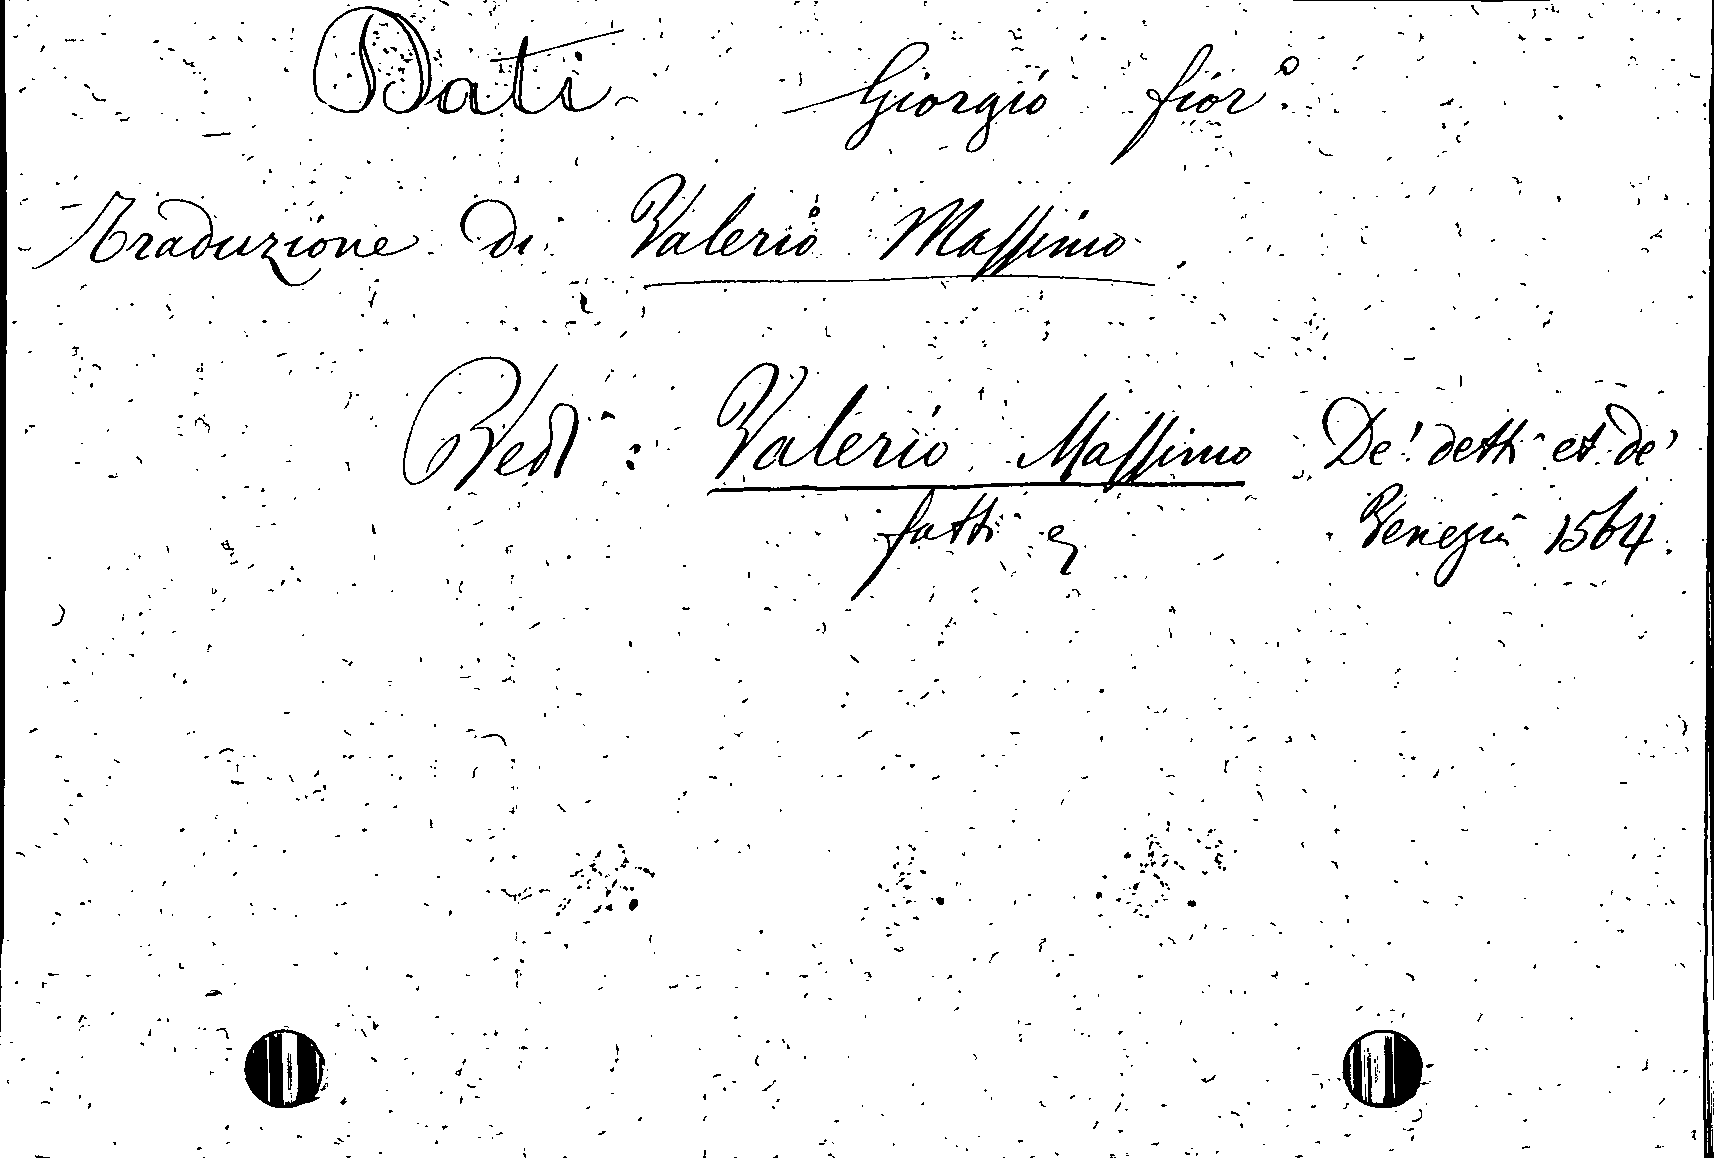 Dati Giorgio fior.º
Traduzione di Valerio Massimo
Vedi: Valerio Massimo De' detti et de'
fatti Venezia 1564.